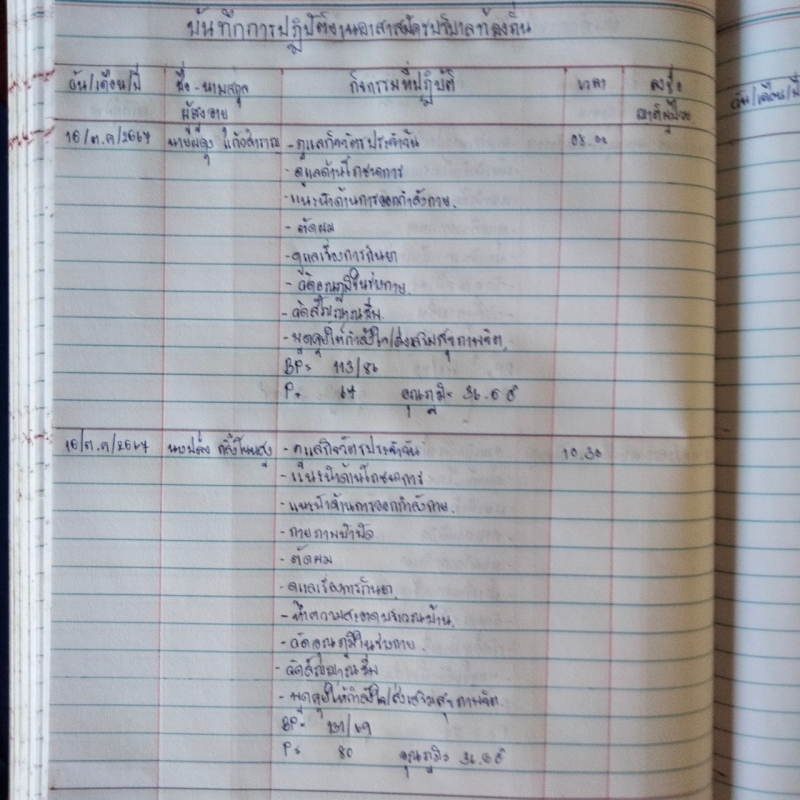 บันทึกการปฏิบัติงานอาสาสมัครบริบาลท้องถิ่น
วัน/เดือน/ปี ชื่อ-นามสกุล กิจกรรมที่ปฏิบัติ เวลา ลงชื่อ
ผู้สูงอายุ ญาติผู้ป่วย
วัน/เดือน/ปี
16/ต.ค/2567 แก้วสำราญ - ดูแลกิจวัตรประจำวัน 08.00
- ดูแลด้านโภชนาการ
- แนะนำด้านการออกกำลังกาย.
- ตัดผม
- ดูแลเรื่องการกินยา
- วัดอุณภูมิในร่างกาย.
- วัดสัญญาณชีพ.
- พูดคุยให้กำลังใจ/ส่งเสริมสุขภาพจิต.
BP= 113/86
P= 67 อุณภูมิ= 36.6 อํ
16/ต.ค/2567 - ดูแลกิจวัตรประจำวัน 10.30
- แนะนำด้านโภชนาการ
- แนะนำด้านการออกกำลังกาย.
- กายภาพบำบัด
- ตัดผม
- ดูแลเรื่องการกินยา.
- ทำความสะอาดบริเวณบ้าน.
- วัดอุณภูมิในร่างกาย.
- วัดสัญญาณชีพ
- พูดคุยให้กำลังใจ/ส่งเสริมสุขภาพจิต.
BP= 131/69
P= 80 อุณภูมิ= 36.6 อํ